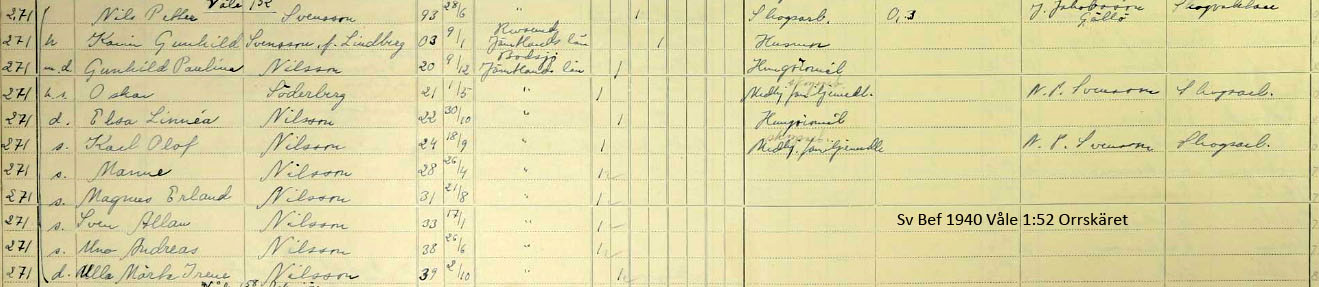 Våle 1:52
271 Nils Petter Svensson 93 28/6 " 1 Skogsarb. 0,3 J. Jakobsson Gällö
271 h Karin Gunhild Svensson, f. Lindberg 03 9/1 Jämtlands län 1 Husmor
271 Gunhild Paulina Nilsson 20 9/12 Bodsjö Jämtlands län 1
271 Oskar Söderberg 21 1/5 " 1 N. P. Svensson Skogsarb.
271 d. Elsa Linnéa Nilsson 22 30/10 " 1
271 s. Karl Olof Nilsson 24 18/9 " 1 N. P. Svensson Skogsarb.
271 s. Manne Nilsson 28 26/4 " 1
271 s. Magnus Erland Nilsson 31 21/8 " 1
271 s. Sven Allan Nilsson 33 17/1 " 1
Sv Bef 1940 Våle 1:52 Orrskäret
271 s. Uno Andreas Nilsson 38 26/6 " 1
271 d. Ulla Märta Irene Nilsson 39 2/10 " 1